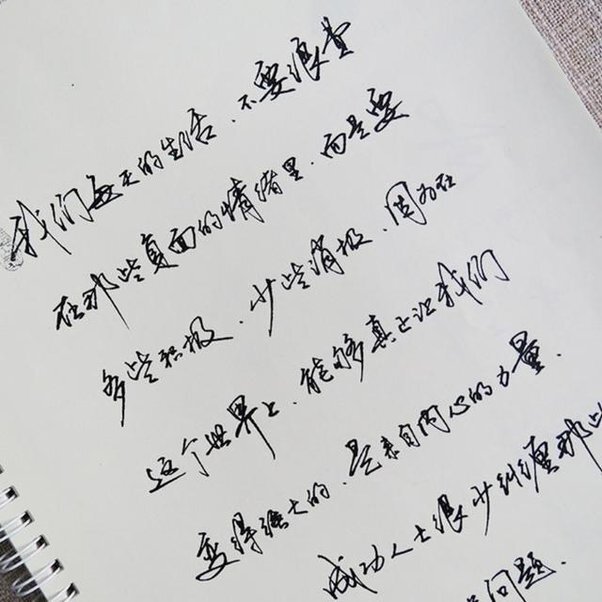 我们每天的生活、不要浪费
在那些负面的情绪里、而是要
多些积极、少些消极、因为在
这个世界上、能够真正让我们
变得强大的、是来自内心的力量.
成功人士很少纠缠那些
问题.